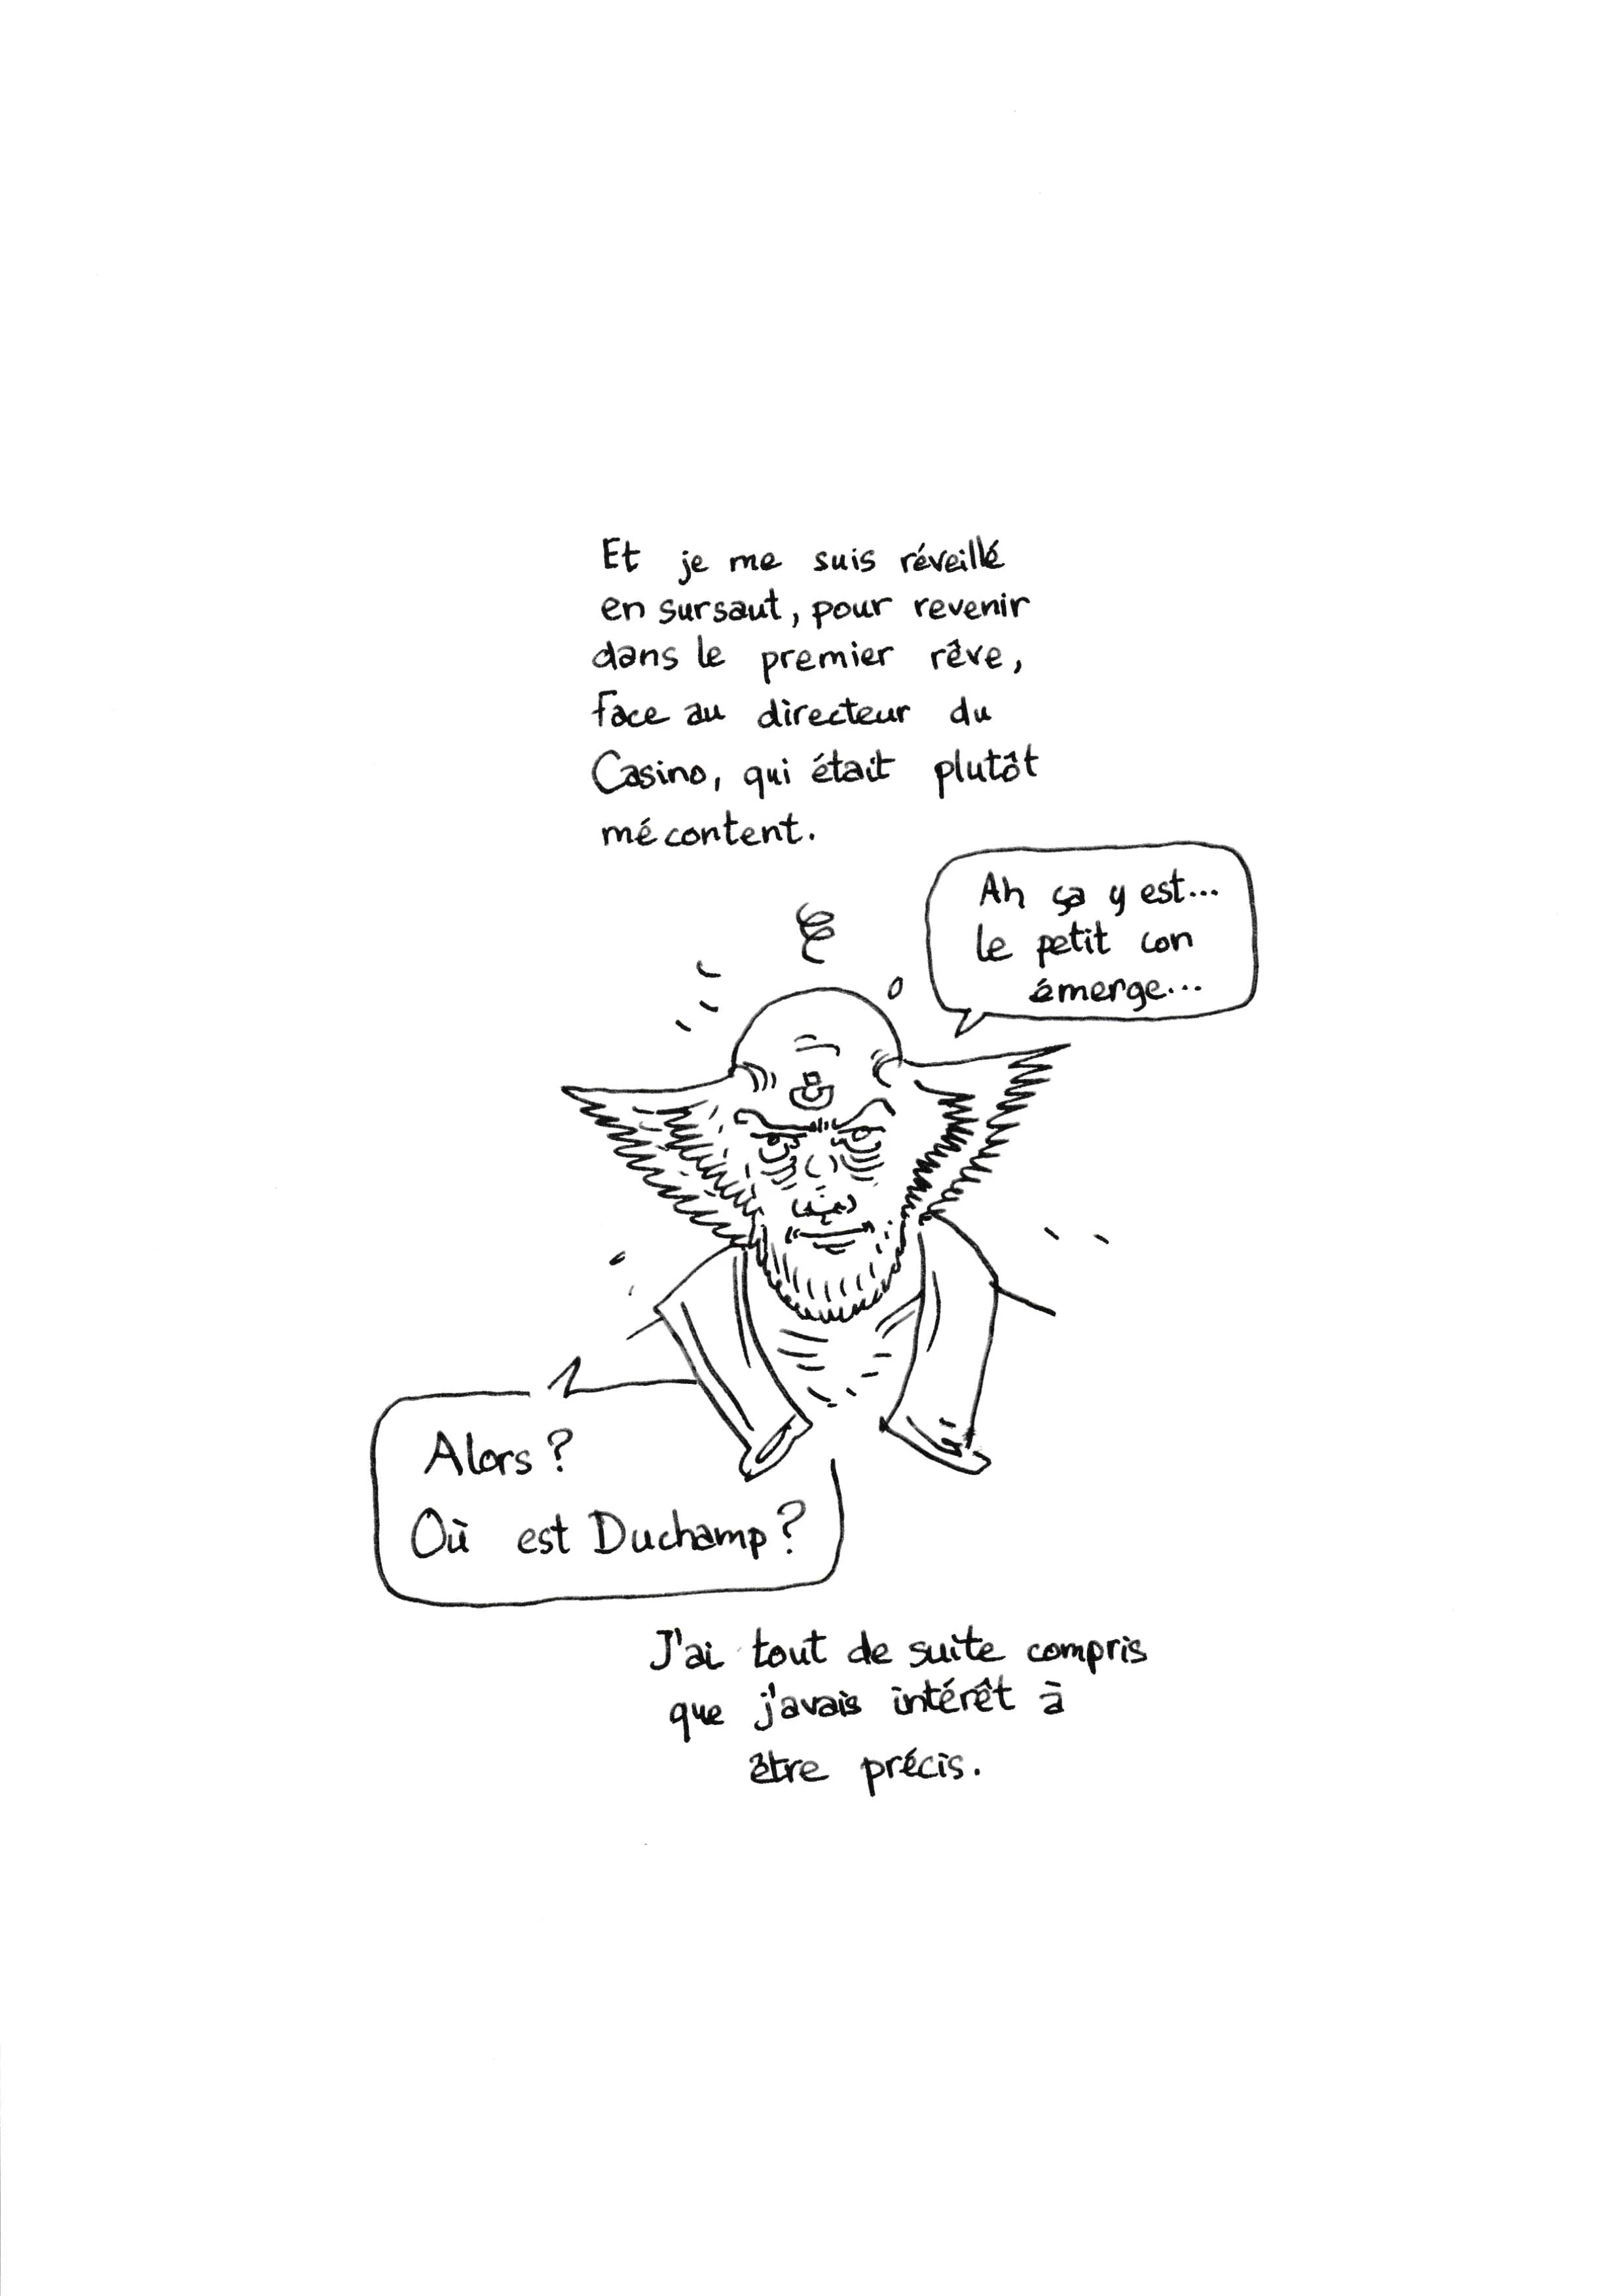 Et je me suis réveillé
en sursaut, pour revenir
dans le premier rêve,
face au directeur du
Casino, qui était plutôt
mécontent.
Ah ça y est...
le petit con
émerge...
Alors ?
Où est Duchamp ?
J'ai tout de suite compris
que j'avais intérêt à
être précis.